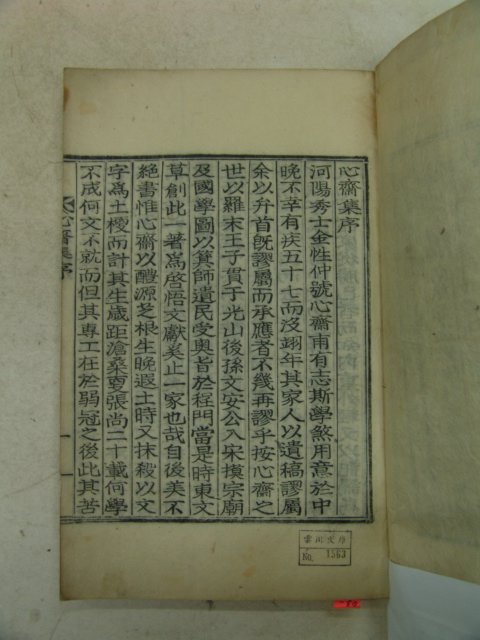 心齋集序
河陽秀士金性仲號心齋甫有志斯學煞用意於中
晚不幸有疾五十七而沒翊年其家人以遺稿謬屬
余以弁首旣謬屬而承應者不幾再謬乎按心齋之
世以羅末王子貫于光山後孫文安公入宋摸宗廟
及國學圖以箕師遺民受奧旨於程門當是時東文
草創此一著爲啓悟文獻奚止一家也哉自後美不
絶書惟心齋以醴源芝根生晚遐土時又抹殺以文
字爲土梗而計其生歲距滄桑亶張尚二十載何學
不成何文不就而但其專工在於弱冠之後此其苦
心齋集序
一
雲岡文庫
No. 1563